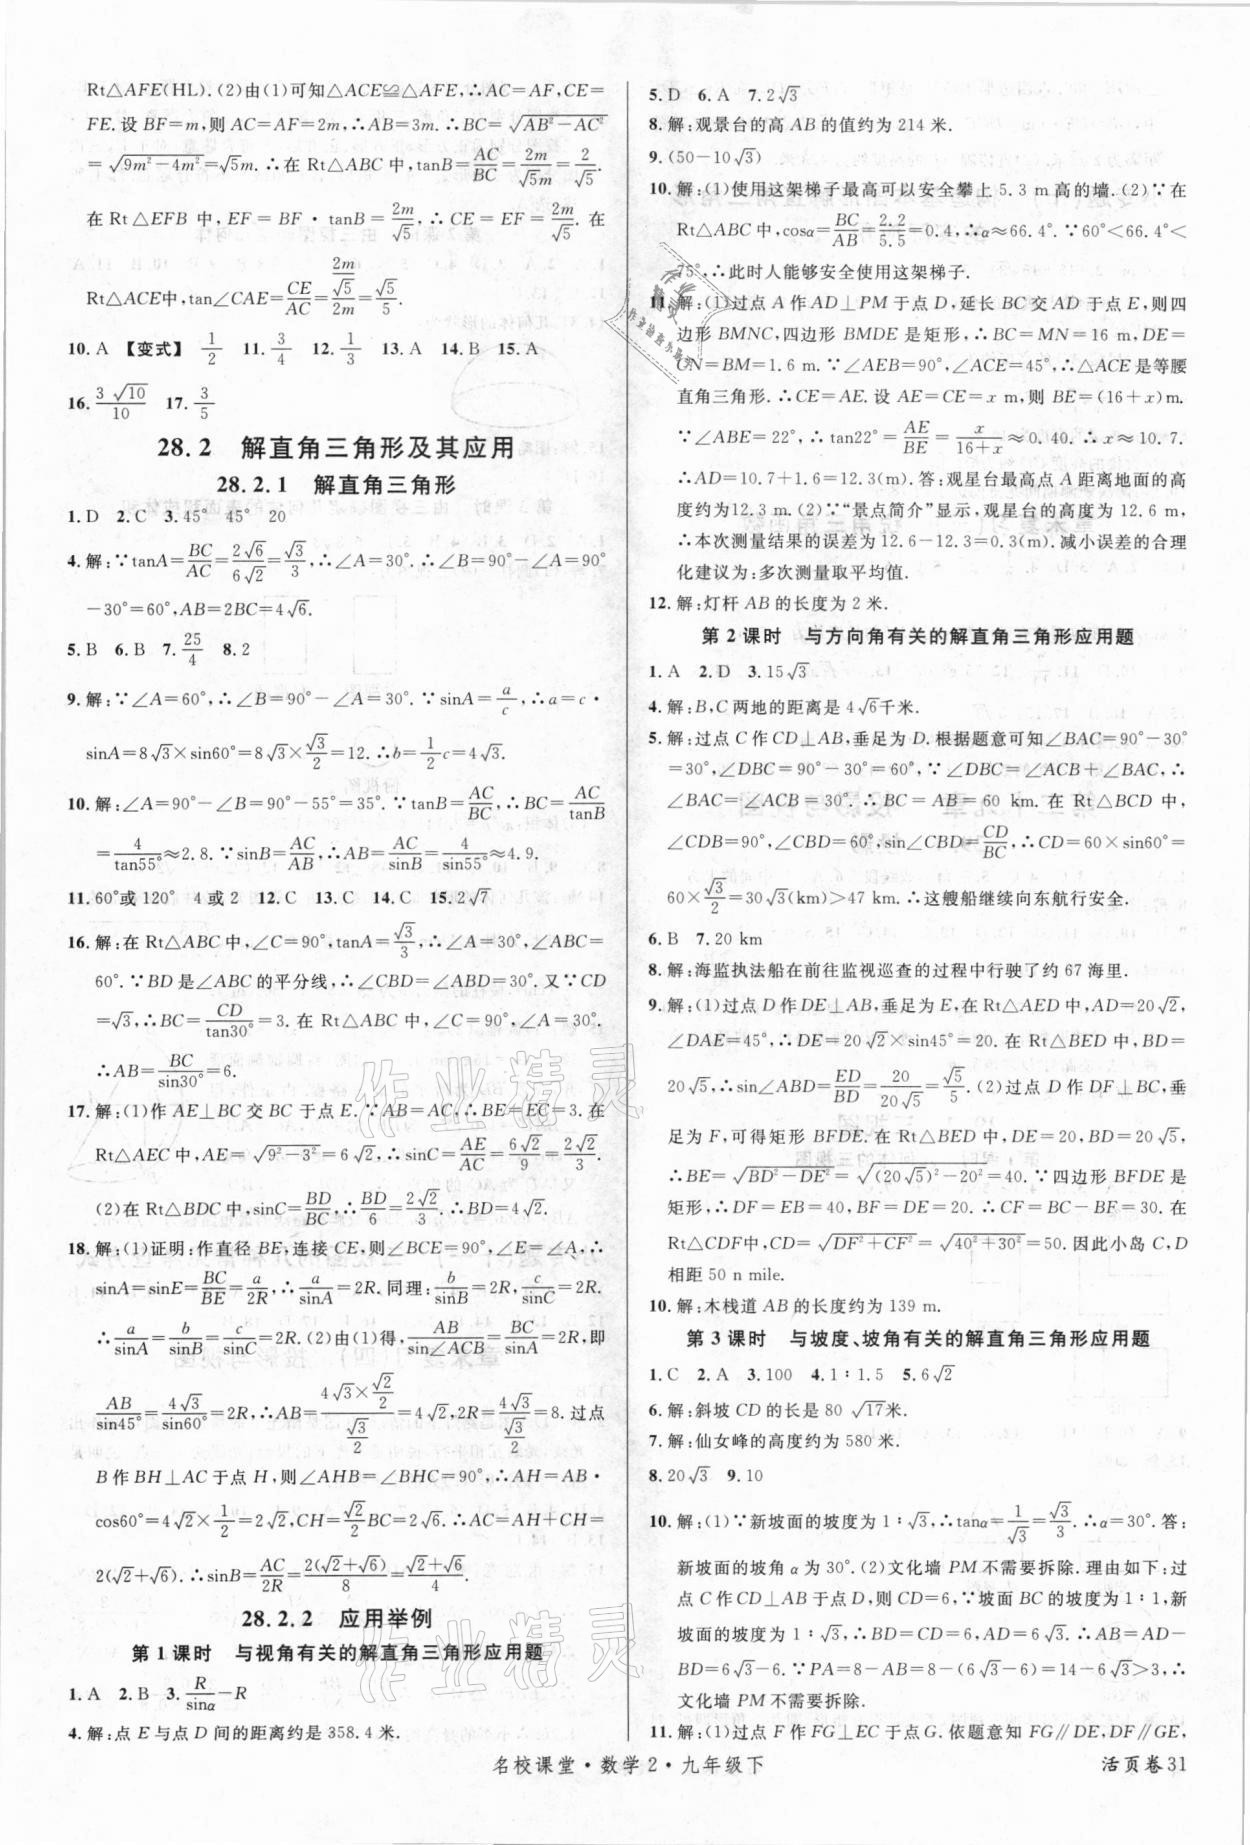 Rt△AFE(HL). (2)由(1)可知△ACE≌△AFE,∴AC=AF,CE=
FE. 设 BF=m,则 AC=AF=2m,∴AB=3m. ∴BC=√(AB²-AC²)
=√(9m²-4m²)=√5m. ∴在 Rt△ABC 中,tanB=AC/BC=2m/(√5m)=2/√5.
在 Rt△EFB 中,EF=BF·tanB=2m/√5,∴CE=EF=2m/√5. 在
Rt△ACE中,tan∠CAE=CE/AC=(2m/√5)/(2m)=√5/5.
10. A 【变式】 1/2 11. 3/4 12. 1/3 13. A 14. B 15. A
16. 3√10/10 17. 3/5
28.2 解直角三角形及其应用
28.2.1 解直角三角形
1. D 2. C 3. 45° 45° 20
4. 解:∵tanA=BC/AC=2√6/(6√2)=√3/3,∴∠A=30°. ∴∠B=90°-∠A=90°
-30°=60°,AB=2BC=4√6.
5. B 6. B 7. 25/4 8. 2
9. 解:∵∠A=60°,∴∠B=90°-∠A=30°. ∵sinA=a/c,∴a=c·
sinA=8√3×sin60°=8√3×√3/2=12. ∴b=1/2c=4√3.
10. 解:∠A=90°-∠B=90°-55°=35°. ∵tanB=AC/BC,∴BC=AC/tanB
=4/tan55°≈2.8. ∵sinB=AC/AB,∴AB=AC/sinB=4/sin55°≈4.9.
11. 60°或120° 4 或 2 12. C 13. C 14. C 15. 2√7
16. 解:在 Rt△ABC 中,∠C=90°,tanA=√3/3,∴∠A=30°,∠ABC=
60°. ∵BD 是∠ABC 的平分线,∴∠CBD=∠ABD=30°. 又∵CD
=√3,∴BC=CD/tan30°=3. 在 Rt△ABC 中,∠C=90°,∠A=30°.
∴AB=BC/sin30°=6.
17. 解:(1)作 AE⊥BC 交 BC 于点 E. ∵AB=AC,∴BE=EC=3. 在
Rt△AEC 中,AE=√(9²-3²)=6√2,∴sinC=AE/AC=6√2/9=2√2/3.
(2)在 Rt△BDC 中,sinC=BD/BC,∴BD/6=2√2/3. ∴BD=4√2.
18. 解:(1)证明:作直径 BE,连接 CE,则∠BCE=90°,∠E=∠A,∴
sinA=sinE=BC/BE=a/2R,∴a/sinA=2R. 同理:b/sinB=2R,c/sinC=2R.
∴a/sinA=b/sinB=c/sinC=2R. (2)由(1)得:AB/sin∠ACB=BC/sinA=2R,即
AB/sin45°=4√3/sin60°=2R,∴AB=(4√3×√2/2)/(√3/2)=4√2,2R=4√3/(√3/2)=8. 过点
B 作 BH⊥AC 于点 H,则∠AHB=∠BHC=90°,∴AH=AB·
cos60°=4√2×1/2=2√2,CH=√2/2BC=2√6. ∴AC=AH+CH=
2(√2+√6). ∴sinB=AC/2R=2(√2+√6)/8=(√2+√6)/4.
28.2.2 应用举例
第 1 课时 与视角有关的解直角三角形应用题
1. A 2. B 3. R/sinα-R
4. 解:点 E 与点 D 间的距离约是 358.4 米.
5. D 6. A 7. 2√3
8. 解:观景台的高 AB 的值约为 214 米.
9. (50-10√3)
10. 解:(1)使用这架梯子最高可以安全攀上 5.3 m 高的墙. (2)∵在
Rt△ABC 中,cosα=BC/AB=2.2/5.5=0.4,∴α≈66.4°. ∵60°<66.4°<
75°,∴此时人能够安全使用这架梯子.
11. 解:(1)过点 A 作 AD⊥PM 于点 D,延长 BC 交 AD 于点 E,则四
边形 BMNC,四边形 BMDE 是矩形,∴BC=MN=16 m,DE=
CN=BM=1.6 m. ∵∠AEB=90°,∠ACE=45°,∴△ACE 是等腰
直角三角形. ∴CE=AE. 设 AE=CE=x m,则 BE=(16+x)m.
∵∠ABE=22°,∴tan22°=AE/BE=x/(16+x)≈0.40. ∴x≈10.7.
∴AD=10.7+1.6=12.3(m). 答:观星台最高点 A 距离地面的高
度约为 12.3 m. (2)∵“景点简介”显示,观星台的高度为 12.6 m,
∴本次测量结果的误差为 12.6-12.3=0.3(m). 减小误差的合理
化建议为:多次测量取平均值.
12. 解:灯杆 AB 的长度为 2 米.
第 2 课时 与方向角有关的解直角三角形应用题
1. A 2. D 3. 15√3
4. 解:B,C 两地的距离是 4√6千米.
5. 解:过点 C 作 CD⊥AB,垂足为 D. 根据题意可知∠BAC=90°-30°
=30°,∠DBC=90°-30°=60°. ∵∠DBC=∠ACB+∠BAC,∴
∠BAC=∠ACB=30°. ∴BC=AB=60 km. 在 Rt△BCD 中,
∠CDB=90°,∠CBD=60°,sin∠CBD=CD/BC,∴CD=60×sin60°=
60×√3/2=30√3(km)>47 km. ∴这艘船继续向东航行安全.
6. B 7. 20 km
8. 解:海监执法船在前往监视巡查的过程中行驶了约 67 海里.
9. 解:(1)过点 D 作 DE⊥AB,垂足为 E,在 Rt△AED 中,AD=20√2,
∠DAE=45°,∴DE=20√2×sin45°=20. 在 Rt△BED 中,BD=
20√5,∴sin∠ABD=ED/BD=20/(20√5)=√5/5. (2)过点 D 作 DF⊥BC,垂
足为 F,可得矩形 BFDE. 在 Rt△BED 中,DE=20,BD=20√5,
∴BE=√(BD²-DE²)=√((20√5)²-20²)=40. ∵四边形 BFDE 是
矩形,∴DF=EB=40,BF=DE=20. ∴CF=BC-BF=30. 在
Rt△CDF中,CD=√(DF²+CF²)=√(40²+30²)=50. 因此小岛 C,D
相距 50 n mile.
10. 解:木栈道 AB 的长度约为 139 m.
第 3 课时 与坡度、坡角有关的解直角三角形应用题
1. C 2. A 3. 100 4. 1∶1.5 5. 6√2
6. 解:斜坡 CD 的长是 80 √17米.
7. 解:仙女峰的高度约为 580 米.
8. 20√3 9. 10
10. 解:(1)∵新坡面的坡度为 1∶√3,∴tanα=1/√3=√3/3. ∴α=30°. 答:
新坡面的坡角 α 为 30°. (2)文化墙 PM 不需要拆除. 理由如下:过
点 C 作 CD⊥AB 于点 D,则 CD=6,∵坡面 BC 的坡度为 1∶1,
新坡面的坡度为 1∶√3,∴BD=CD=6,AD=6√3. ∴AB=AD-
BD=6√3-6. ∵PA=8-AB=8-(6√3-6)=14-6√3>3,∴
文化墙 PM 不需要拆除.
11. 解:(1)过点 F 作 FG⊥EC 于点 G. 依题意知 FG∥DE,DF∥GE,
名校课堂·数学 2·九年级下
活页卷 31
作业精灵
作业精灵